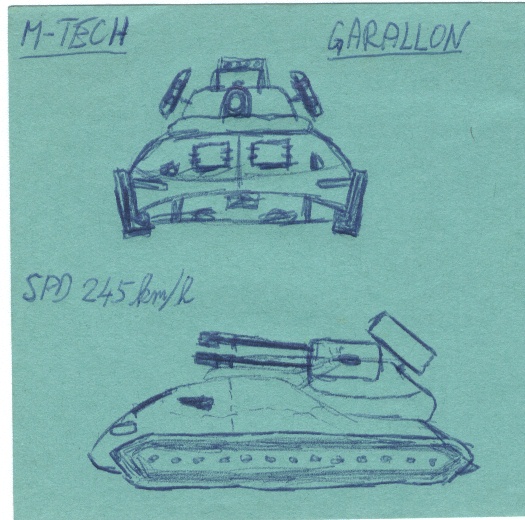 M-TECH
GARALLON
SPD 245 km/h